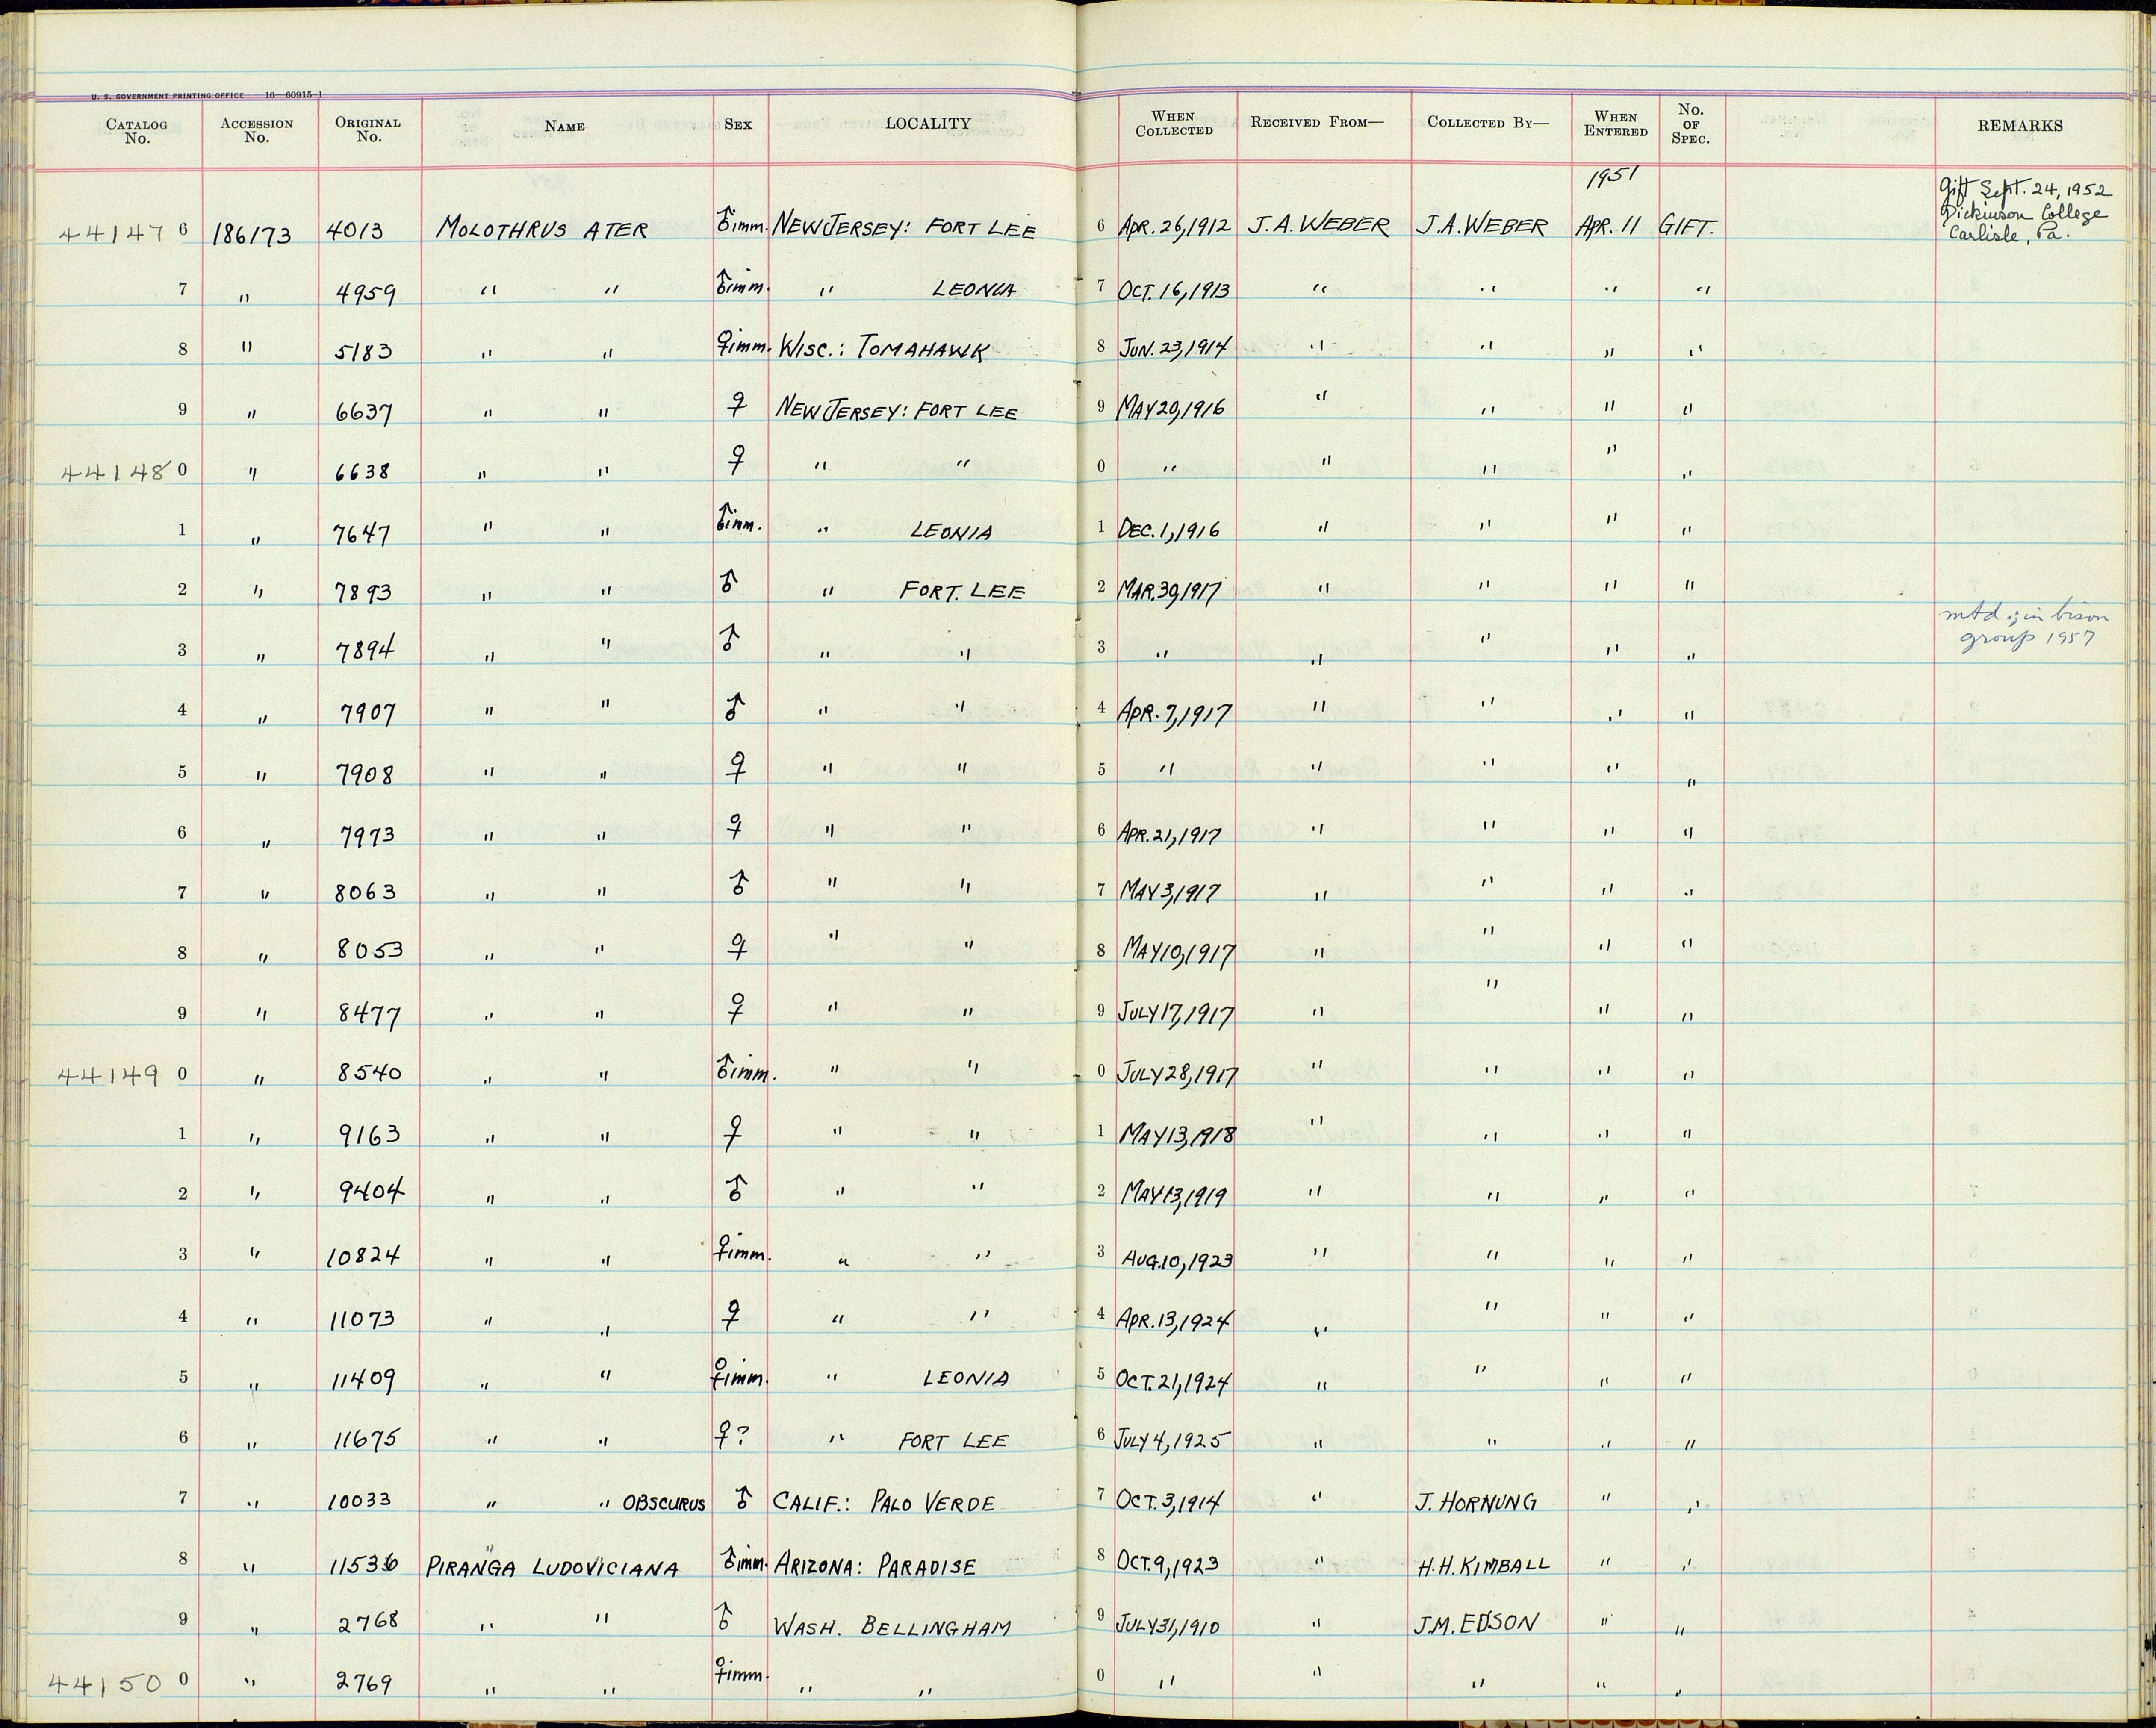 U. S. GOVERNMENT PRINTING OFFICE 16—60915-1
CATALOG No. ACCESSION No. ORIGINAL No. NAME SEX LOCALITY WHEN COLLECTED RECEIVED FROM— COLLECTED BY— WHEN ENTERED No. OF SPEC. REMARKS
1951
Gift Sept. 24, 1952
Dickinson College
Carlisle, Pa.
44147 6 186173 4013 MOLOTHRUS ATER ♂imm. NEW JERSEY: FORT LEE 6 APR. 26, 1912 J. A. WEBER J. A. WEBER APR. 11 GIFT.
7 " 4959 " " ♂imm. " LEONIA 7 OCT. 16, 1913 " " " "
8 " 5183 " " ♀imm. WISC.: TOMAHAWK 8 JUN. 23, 1914 " " " "
9 " 6637 " " ♀ NEW JERSEY: FORT LEE 9 MAY 20, 1916 " " " "
44148 0 " 6638 " " ♀ " " 0 " " " " "
1 " 7647 " " ♂imm. " LEONIA 1 DEC. 1, 1916 " " " "
2 " 7893 " " ♂ " FORT. LEE 2 MAR. 30, 1917 " " " "
3 " 7894 " " ♂ " " 3 " " " " " mtd; in bison
group 1957
4 " 7907 " " ♂ " " 4 APR. 7, 1917 " " " "
5 " 7908 " " ♀ " " 5 " " " " "
6 " 7973 " " ♀ " " 6 APR. 21, 1917 " " " "
7 " 8063 " " ♂ " " 7 MAY 3, 1917 " " " "
8 " 8053 " " ♀ " " 8 MAY 10, 1917 " " " "
9 " 8477 " " ♀ " " 9 JULY 17, 1917 " " " "
44149 0 " 8540 " " ♂imm. " " 0 JULY 28, 1917 " " " "
1 " 9163 " " ♀ " " 1 MAY 13, 1918 " " " "
2 " 9404 " " ♂ " " 2 MAY 13, 1919 " " " "
3 " 10824 " " ♀imm. " " 3 AUG. 10, 1923 " " " "
4 " 11073 " " ♀ " " 4 APR. 13, 1924 " " " "
5 " 11409 " " ♀imm. " LEONIA 5 OCT. 21, 1924 " " " "
6 " 11675 " " ♀? " FORT LEE 6 JULY 4, 1925 " " " "
7 " 10033 " " OBSCURUS ♂ CALIF.: PALO VERDE 7 OCT. 3, 1914 " J. HORNUNG " "
8 " 11536 PIRANGA LUDOVICIANA ♂imm. ARIZONA: PARADISE 8 OCT. 9, 1923 " H. H. KIMBALL " "
9 " 2768 " " ♂ WASH. BELLINGHAM 9 JULY 31, 1910 " J. M. EDSON " "
44150 0 " 2769 " " ♀imm. " " 0 " " " " "